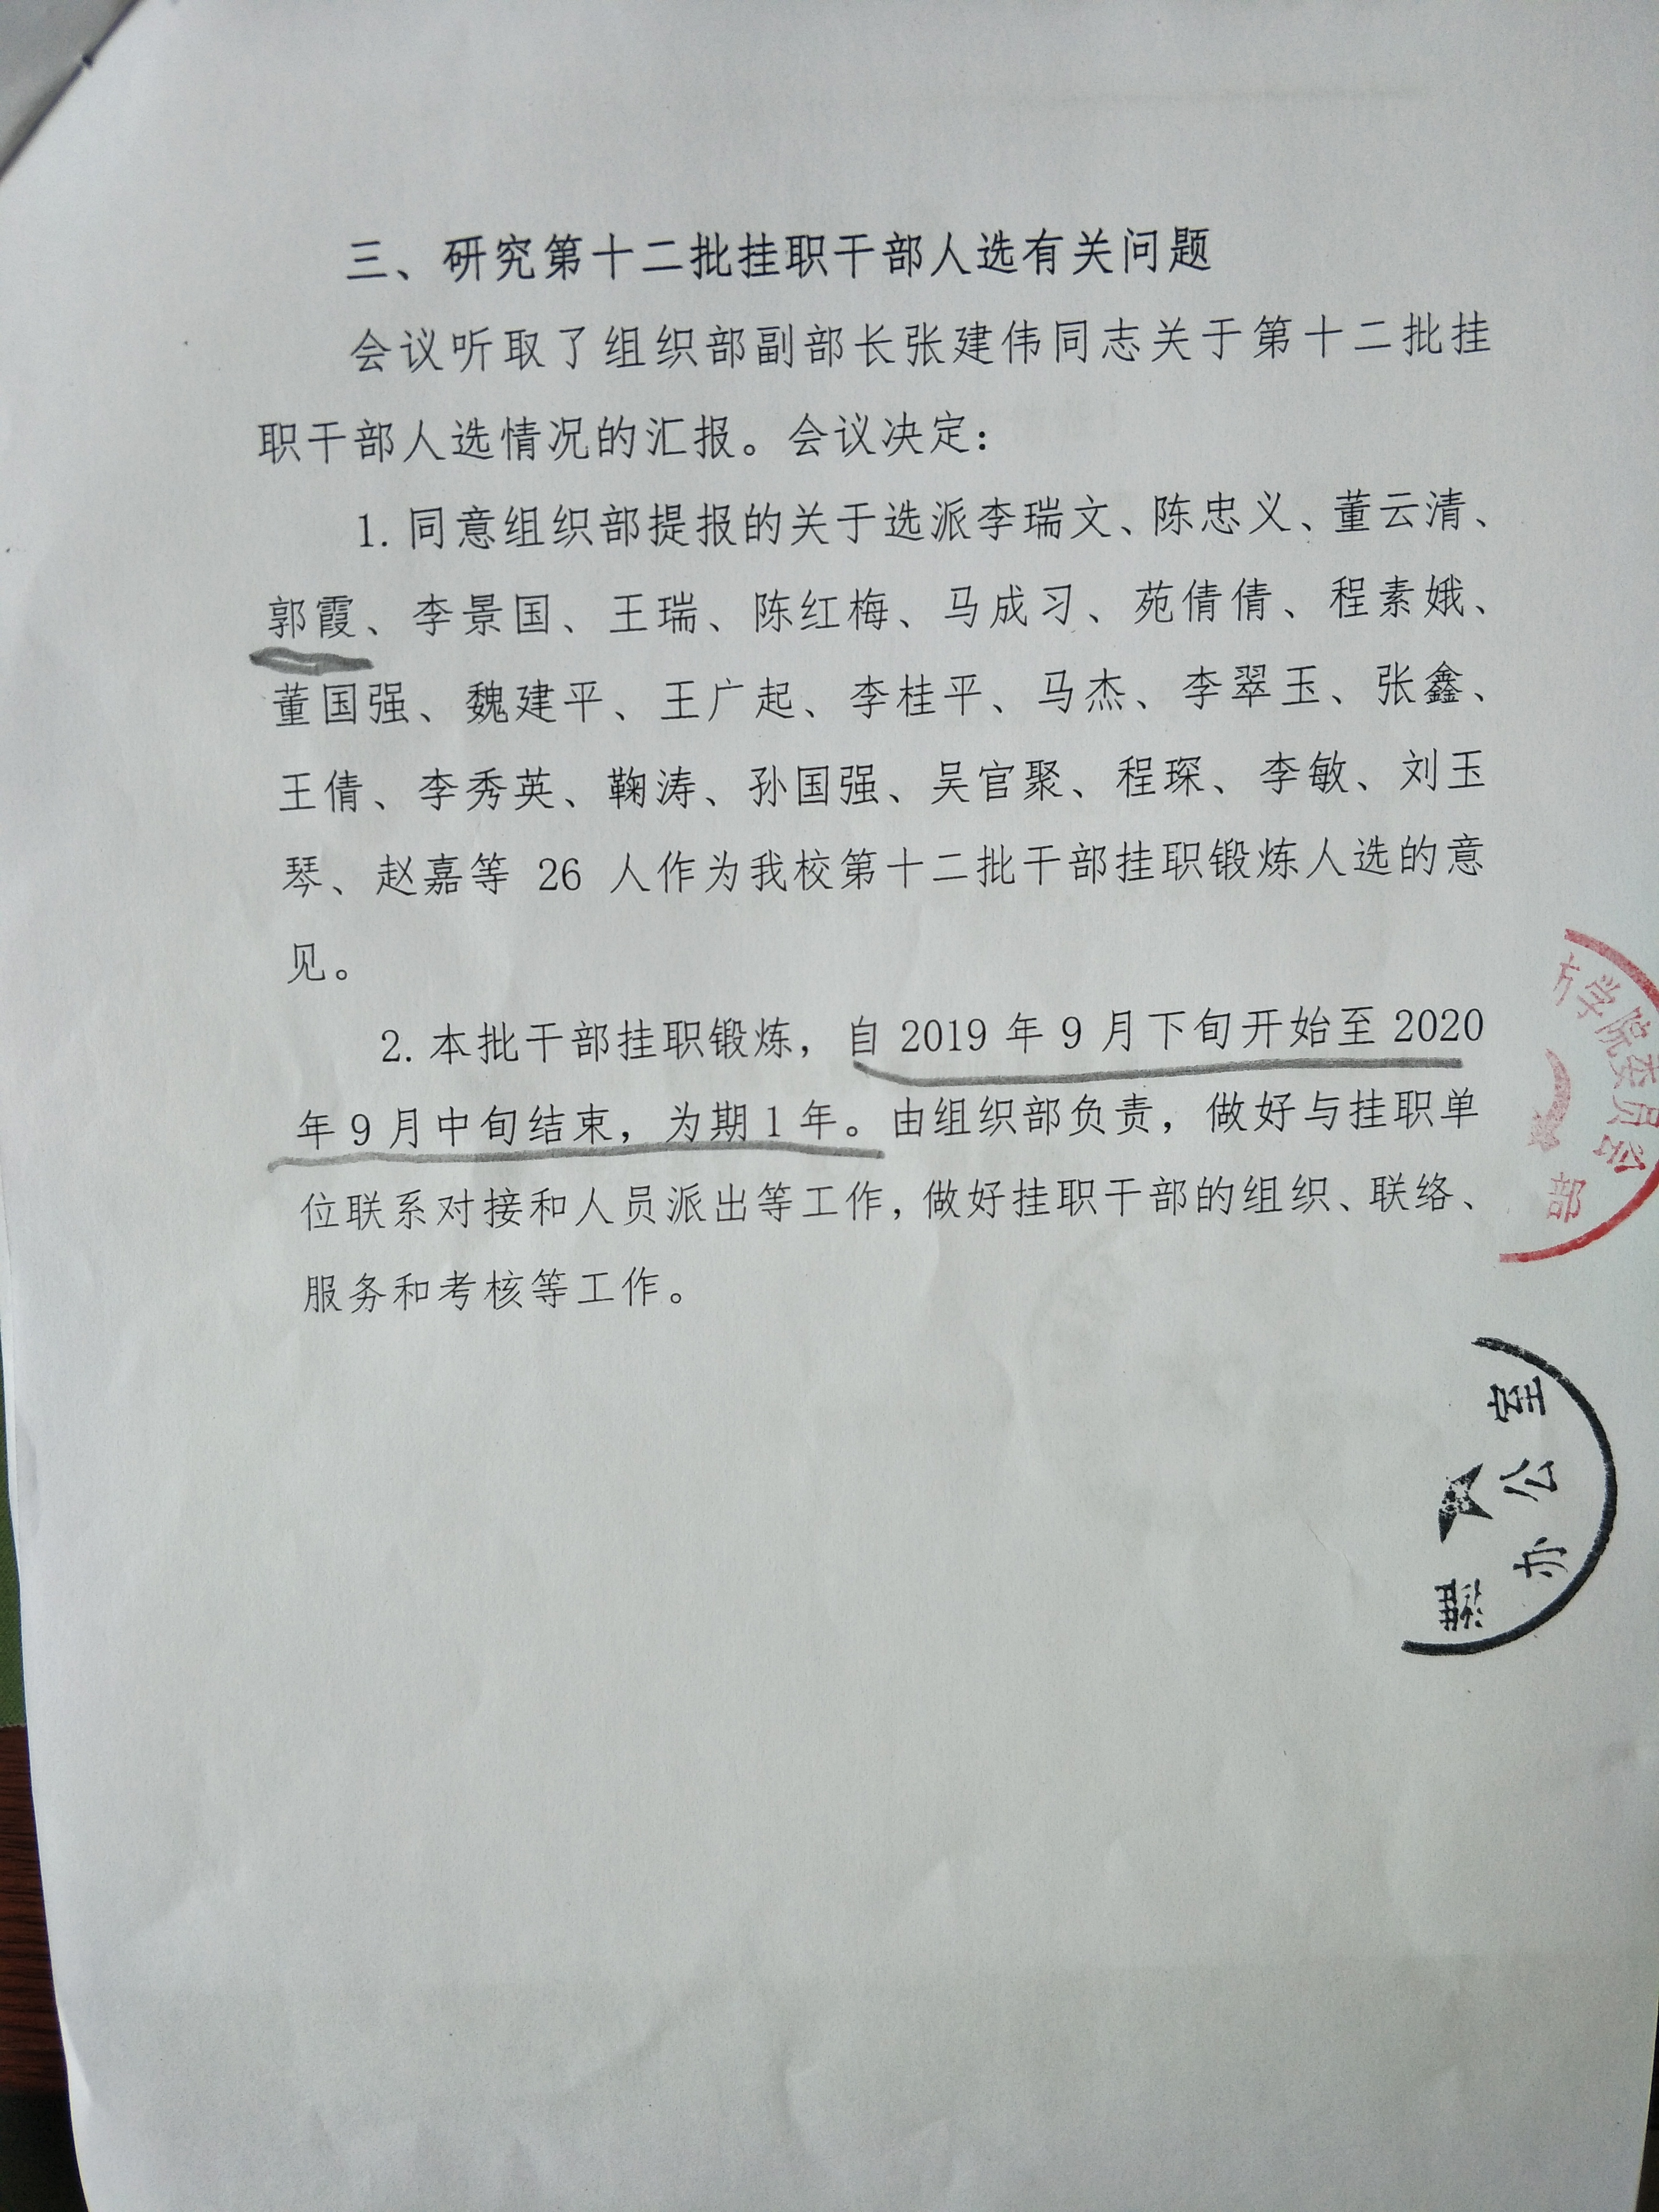 三、研究第十二批挂职干部人选有关问题
会议听取了组织部副部长张建伟同志关于第十二批挂
职干部人选情况的汇报。会议决定：
1. 同意组织部提报的关于选派李瑞文、陈忠义、董云清、
郭霞、李景国、王瑞、陈红梅、马成习、苑倩倩、程素娥、
董国强、魏建平、王广起、李桂平、马杰、李翠玉、张鑫、
王倩、李秀英、鞠涛、孙国强、吴官聚、程琛、李敏、刘玉
琴、赵嘉等 26 人作为我校第十二批干部挂职锻炼人选的意
见。
2. 本批干部挂职锻炼，自 2019 年 9 月下旬开始至 2020
年 9 月中旬结束，为期 1 年。由组织部负责，做好与挂职单
位联系对接和人员派出等工作，做好挂职干部的组织、联络、
服务和考核等工作。
学院委员会
部
办公室